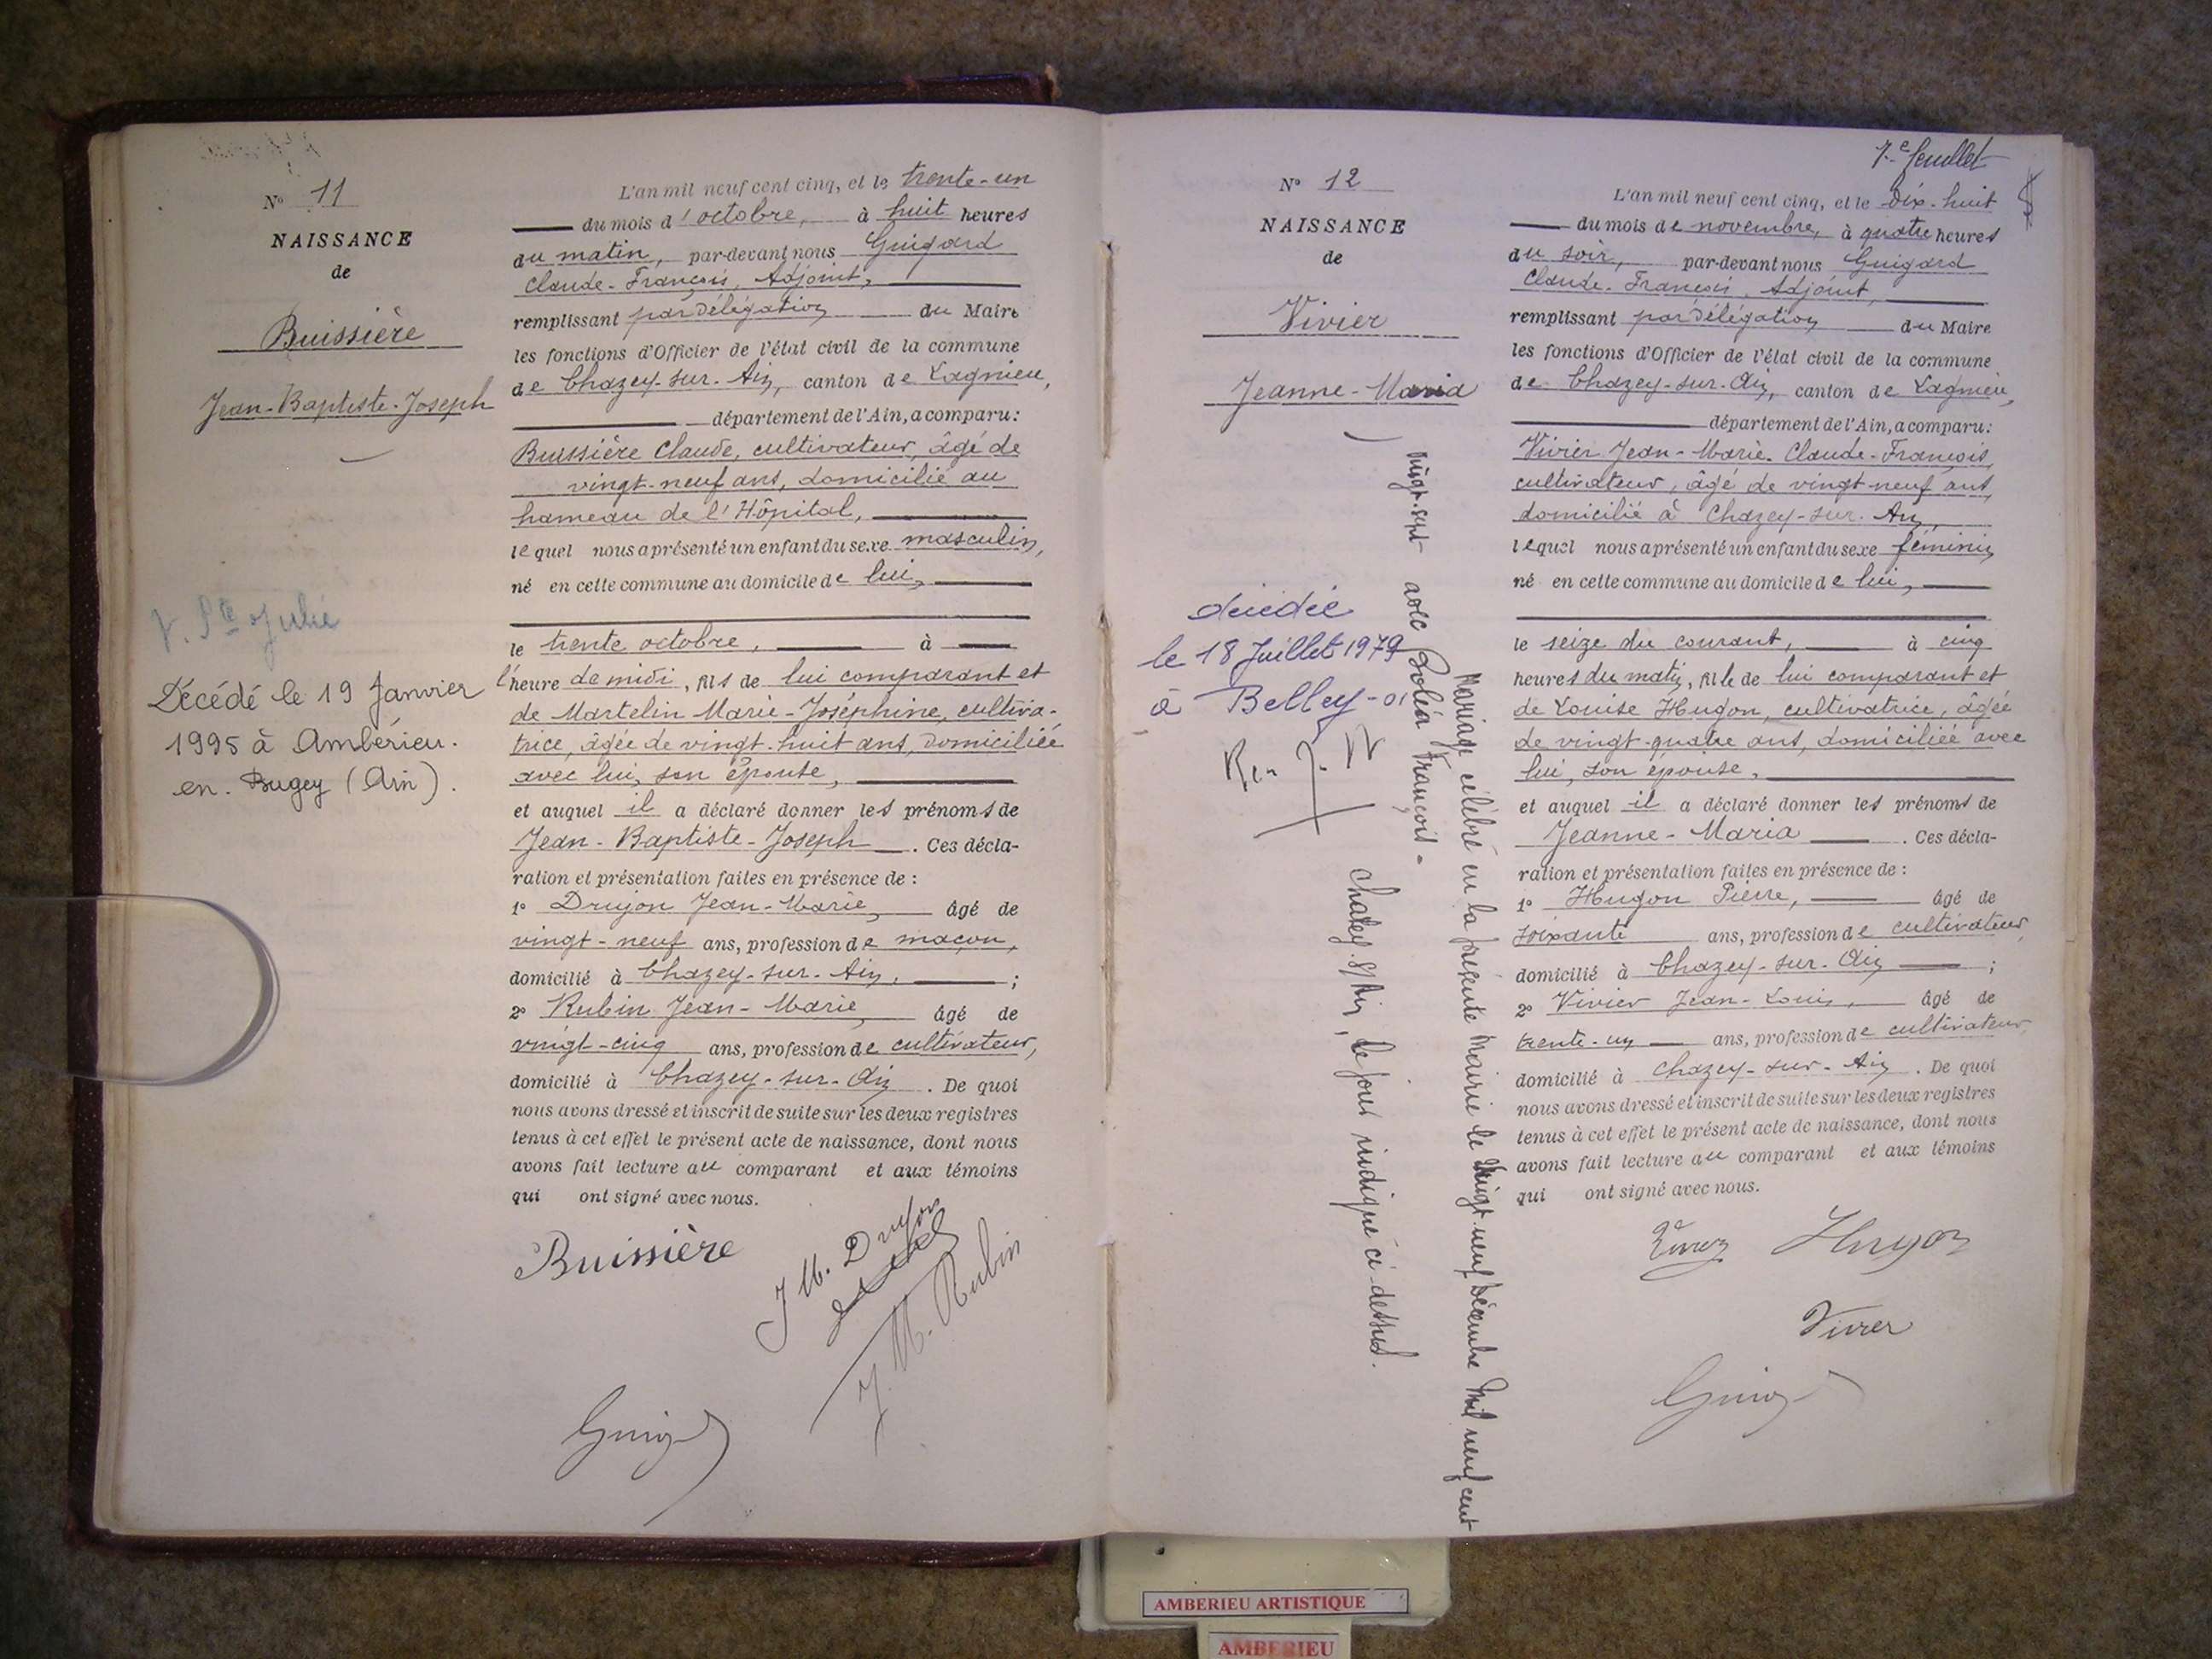 N° 11
NAISSANCE
de
Buissière
Jean-Baptiste-Joseph
V. Ste Julie
Décédé le 19 Janvier
1995 à Ambérieu.
en. Bugey (Ain).
L'an mil neuf cent cinq, et le trente-un
du mois d'octobre, à huit heures
du matin, par-devant nous Guigard
Claude-François, Adjoint,
remplissant par délégation du Maire
les fonctions d'Officier de l'état civil de la commune
de Chazey-sur-Ain, canton de Lagnieu,
département de l'Ain, a comparu:
Buissière Claude, cultivateur, âgé de
vingt-neuf ans, domicilié au
hameau de l'Hôpital,
lequel nous a présenté un enfant du sexe masculin,
né en cette commune au domicile de lui,
le trente octobre, à
l'heure de midi, fils de lui comparant et
de Martelin Marie-Joséphine, cultiva-
trice, âgée de vingt-huit ans, domiciliée
avec lui, son épouse,
et auquel il a déclaré donner les prénoms de
Jean-Baptiste-Joseph. Ces décla-
ration et présentation faites en présence de:
1° Drujon Jean-Marie, âgé de
vingt-neuf ans, profession de maçon,
domicilié à Chazey-sur-Ain, ;
2° Rubin Jean-Marie âgé de
vingt-cinq ans, profession de cultivateur,
domicilié à Chazey-sur-Ain. De quoi
nous avons dressé et inscrit de suite sur les deux registres
tenus à cet effet le présent acte de naissance, dont nous
avons fait lecture au comparant et aux témoins
qui ont signé avec nous.
Buissière
J M. Drujon
J. M. Rubin
7e feuillet
N° 12
NAISSANCE
de
Vivier
Jeanne-Maria
décédée
le 18 Juillet 1979
à Belley-01
Mariage célébré en la présente Mairie le vingt-neuf Décembre Mil neuf cent
vingt-sept avec Boléa François.
Chazey-s/Ain, le jour indiqué ci-dessus.
L'an mil neuf cent cinq, et le dix-huit
du mois de novembre, à quatre heures
du soir, par-devant nous Guigard
Claude-François, Adjoint,
remplissant par délégation du Maire
les fonctions d'Officier de l'état civil de la commune
de Chazey-sur-Ain, canton de Lagnieu,
département de l'Ain, a comparu:
Vivier Jean-Marie-Claude-François,
cultivateur, âgé de vingt-neuf ans,
domicilié à Chazey-sur-Ain,
lequel nous a présenté un enfant du sexe féminin,
né en cette commune au domicile de lui,
le seize du courant, à cinq
heures du matin, fille de lui comparant et
de Louise Hugon, cultivatrice, âgée
de vingt-quatre ans, domiciliée avec
lui, son épouse,
et auquel il a déclaré donner les prénoms de
Jeanne-Maria. Ces décla-
ration et présentation faites en présence de:
1° Hugon Pierre, âgé de
soixante ans, profession de cultivateur,
domicilié à Chazey-sur-Ain ;
2° Vivier Jean-Louis, âgé de
trente-un ans, profession de cultivateur,
domicilié à Chazey-sur-Ain. De quoi
nous avons dressé et inscrit de suite sur les deux registres
tenus à cet effet le présent acte de naissance, dont nous
avons fait lecture au comparant et aux témoins
qui ont signé avec nous.
Hugon
Vivier
AMBERIEU ARTISTIQUE
AMBERIEU